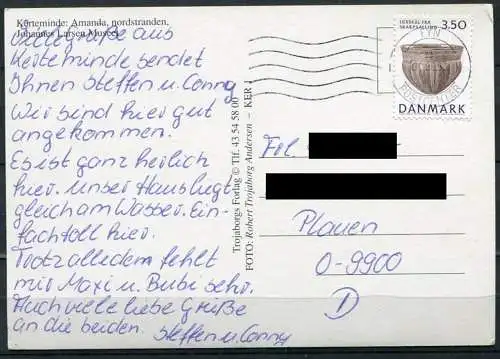 Kerteminde: Amanda, nordstranden,
Johannes Larsen Museet
Viele Grüße aus
Kerteminde sendet
Ihnen Steffen u. Conny
Wir sind hier gut
angekommen.
Es ist ganz herlich
hier. unser Haus liegt
gleich am Wasser. Ein-
fach toll hier.
Trotz alledem fehlt
mir Maxi u. Bubi sehr.
Auch viele liebe Grüße
an die beiden. Steffen u. Conny
Trojaborgs Forlag © Tlf. 43 54 58 00
FOTO: Robert Trojaborg Andersen – KER 1
LERSKÅL FRA
SKARPSALLING
3.50
DANMARK
FYN
POSTCENTER
Frl.
Plauen
O-9900
D